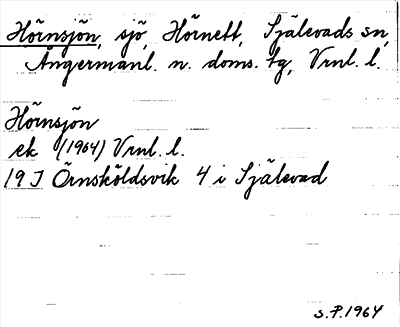 Hörnsjön, sjö, Hörnett, Själevads sn,
Ångermanl. n. doms. tg, Vrnl. l.
Hörnsjön
ek (1964) Vrnl. l.
19 J Örnsköldsvik 4 i Själevad
S.P. 1964